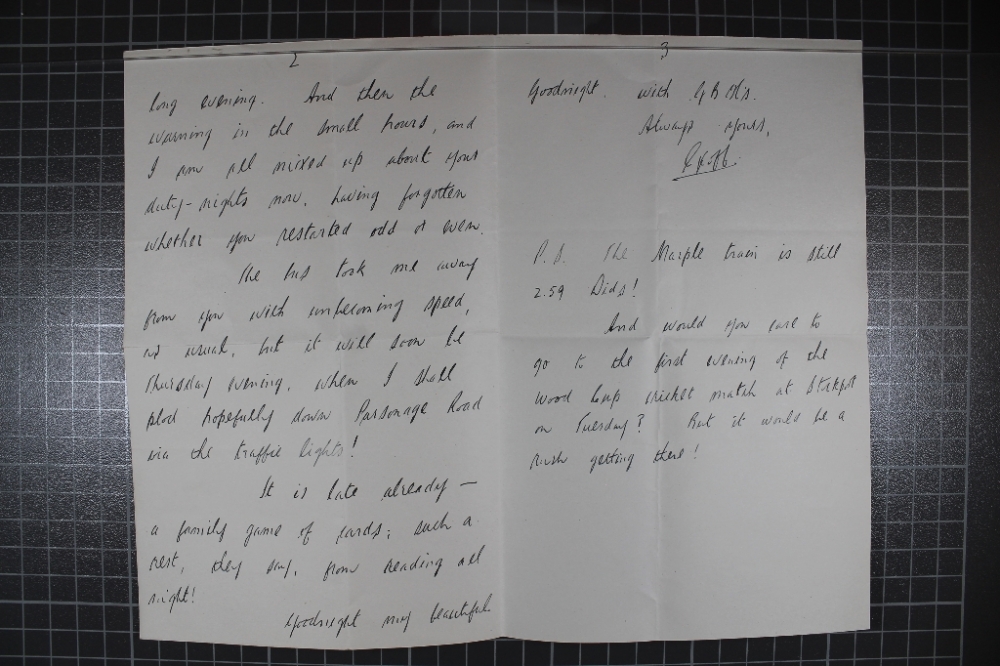 2
long evening. And then the
warning in the small hours, and
I am all mixed up about your
duty-nights now, having forgotten
whether you restarted odd or even.
The bus took me away
from you with unbecoming speed,
as usual, but it will soon be
Thursday evening, when I shall
plod hopefully down Parsonage Road
via the traffic lights!
It is late already —
a family game of cards; such a
rest, they say, from reading all
night!
Goodnight my beautiful
3
Goodnight. With
Always yours,
P.S. The Marple train is still
2.59 Dids!
And would you care to
go to the first evening of the
Wood Cup cricket match at Stockport
on Tuesday? But it would be a
rush getting there!